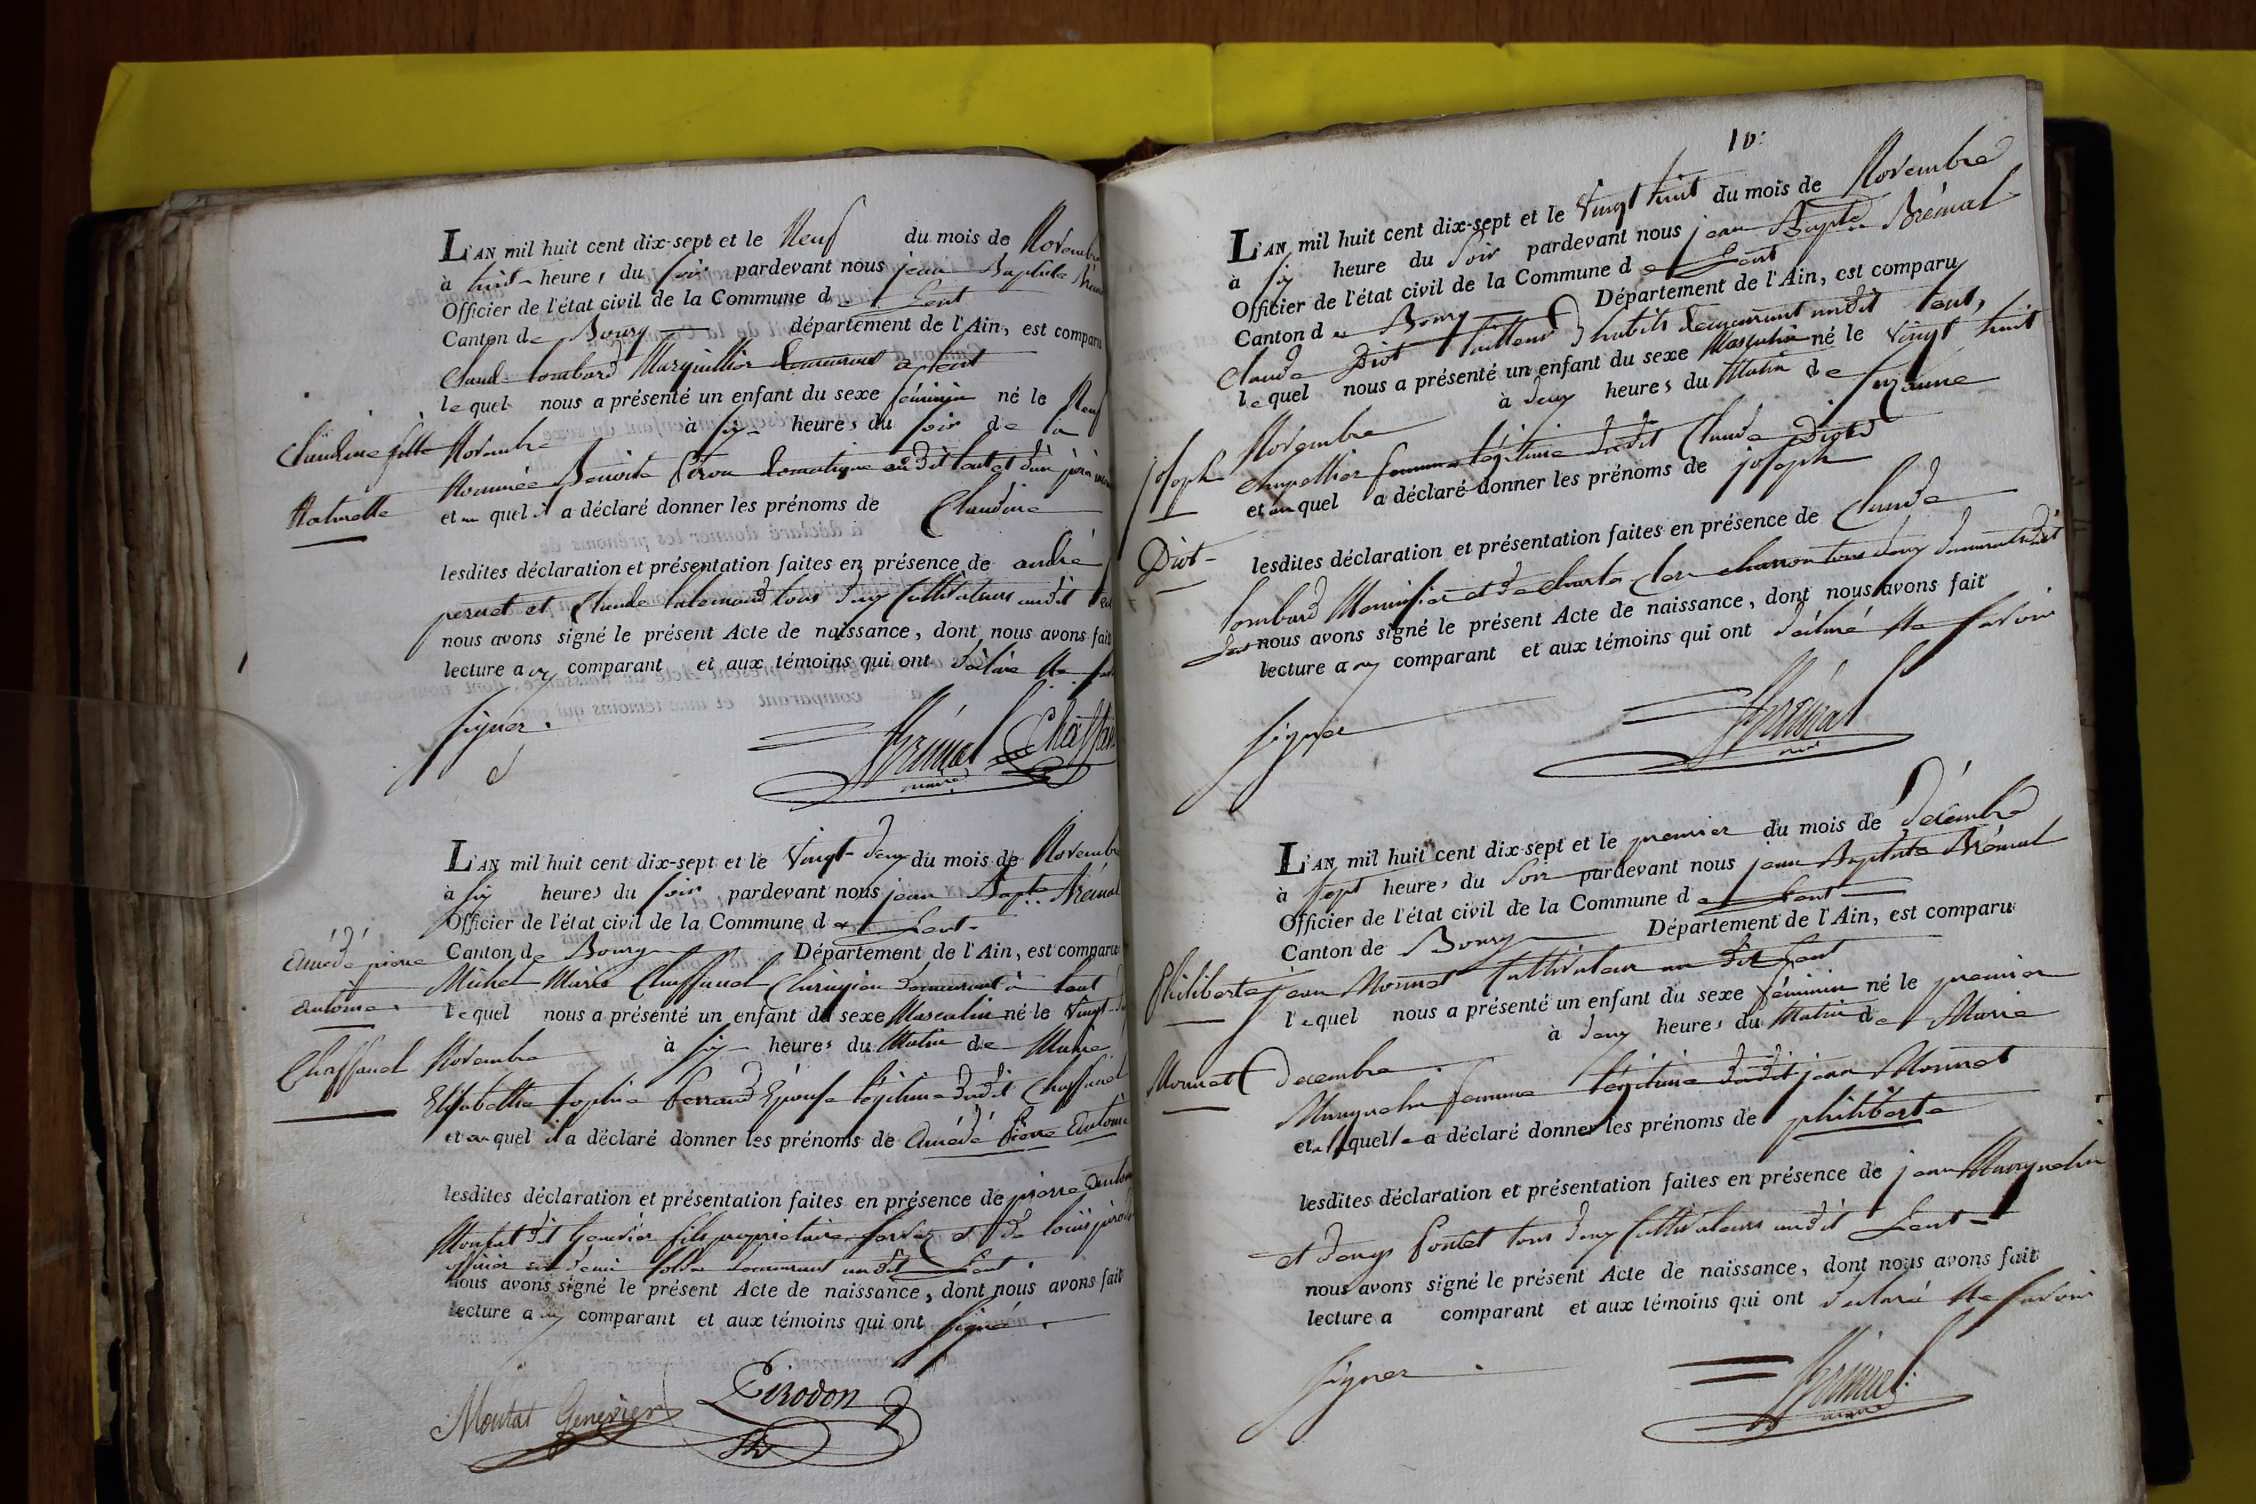 L'AN mil huit cent dix-sept et le Neuf du mois de Novembre
à huit heures du soir pardevant nous jean Baptiste
Officier de l'état civil de la Commune de Lent
Canton de Bourg département de l'Ain, est comparu
Claude Lombard Marguillier demeurant a Lent
lequel nous a présenté un enfant du sexe féminin né le Neuf
Claudine fille
Naturelle
Novembre à six heures du soir de la
Nommée Benoite domestique audit Lent et d'un père
et auquel il a déclaré donner les prénoms de Claudine
lesdites déclaration et présentation faites en présence de andré
peruet et Claude tous deux Cultivateurs audit
nous avons signé le présent Acte de naissance, dont nous avons fait
lecture au comparant et aux témoins qui ont déclaré Ne
signer.
Brémal Chaffau
maire
L'AN mil huit cent dix-sept et le Vingt-deux du mois de Novembre
à six heures du soir pardevant nous jean Bapte. Brémal
Officier de l'état civil de la Commune de Lent
Amédé pierre
antoine
Chaffaud
Canton de Bourg Département de l'Ain, est comparu
Michel Marie Chaffaud Chirurgien demeurant à Lent
lequel nous a présenté un enfant du sexe Masculin né le Vingt-
Novembre à six heures du Matin de Marie
Elisabeth sophie ferrand Epouse légitime dudit Chaffaud
et auquel il a déclaré donner les prénoms de Amédé Pierre Antoine
lesdites déclaration et présentation faites en présence de pierre
Montat dit Genevier fils propriétaire et de louis
officier en demi solde demeurant audit Lent.
nous avons signé le présent Acte de naissance, dont nous avons fait
lecture au comparant et aux témoins qui ont signé.
Montat Genevier Pirodon
10.
L'AN mil huit cent dix-sept et le Vingt huit du mois de Novembre
à six heure du Soir pardevant nous jean Bapte Brémal
Officier de l'état civil de la Commune de Lent
Canton de Bourg Département de l'Ain, est comparu
Claude Diot tailleur d'habits demeurant audit Lent,
lequel nous a présenté un enfant du sexe Masculin né le Vingt huit
joseph
Diot
Novembre à deux heures du Matin de suzanne
chapellier femme légitime dudit Claude Diot
et auquel a déclaré donner les prénoms de joseph
lesdites déclaration et présentation faites en présence de Claude
Lombard Menuisier et de charles charron tous deux demeurant audit
nous avons signé le présent Acte de naissance, dont nous avons fait
lecture au comparant et aux témoins qui ont déclaré Ne savoir
signer
Brémal
L'AN mil huit cent dix-sept et le premier du mois de décembre
à sept heures du Soir pardevant nous jean Baptiste Brémal
Officier de l'état civil de la Commune de Lent
Canton de Bourg Département de l'Ain, est comparu
Philiberte
Monnet
jean Monnet Cultivateur au dit Lent
lequel nous a présenté un enfant du sexe féminin né le premier
decembre à deux heures du Matin de Marie
femme légitime dudit jean Monnet
et a laquelle a déclaré donner les prénoms de philiberte
lesdites déclaration et présentation faites en présence de jean
et denys tous deux Cultivateurs audit Lent
nous avons signé le présent Acte de naissance, dont nous avons fait
lecture a comparant et aux témoins qui ont déclaré Ne savoir
signer
Brémal
maire